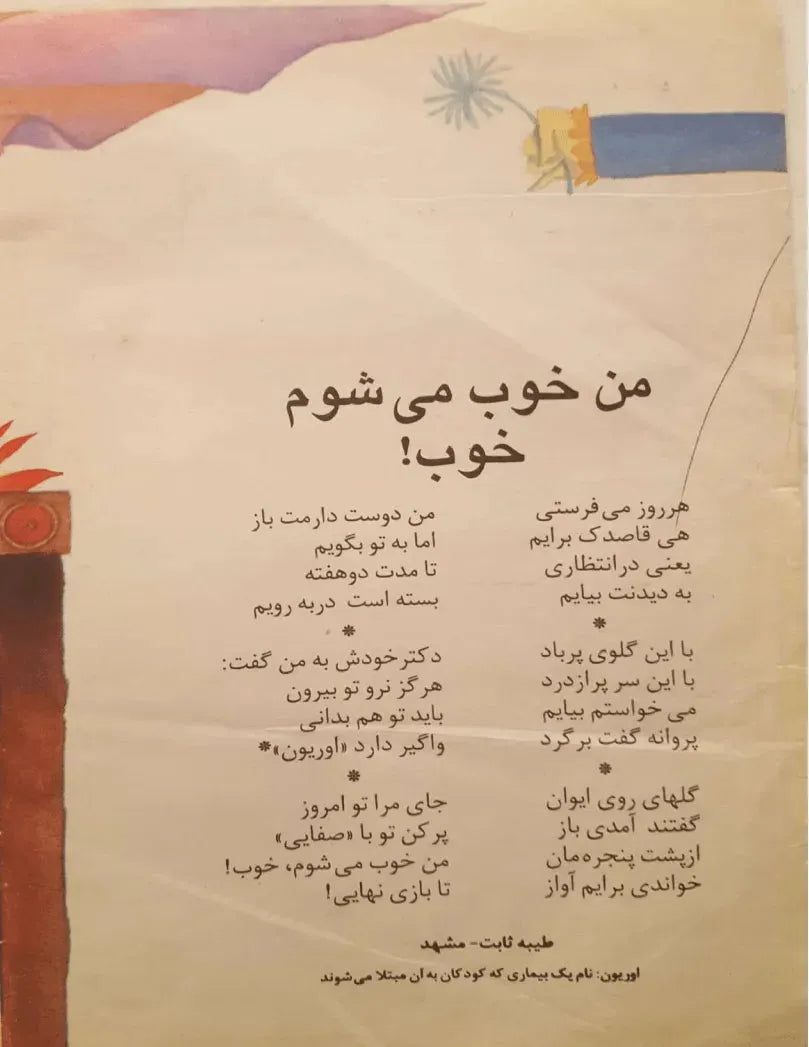 من خوب می‌شوم
خوب!
هرروز می‌فرستی
هی قاصدک برایم
یعنی درانتظاری
به دیدنت بیایم
*
با این گلوی پرباد
با این سر پرازدرد
می خواستم بیایم
پروانه گفت برگرد
*
گلهای روی ایوان
گفتند آمدی باز
ازپشت پنجره‌مان
خواندی برایم آواز
من دوست دارمت باز
اما به تو بگویم
تا مدت دوهفته
بسته است دربه رویم
*
دکترخودش به من گفت:
هرگز نرو تو بیرون
باید تو هم بدانی
واگیر دارد «اوریون»*
*
جای مرا تو امروز
پرکن تو با «صفایی»
من خوب می‌شوم، خوب!
تا بازی نهایی!
طیبه ثابت- مشهد
اوریون: نام یک بیماری که کودکان به آن مبتلا می‌شوند